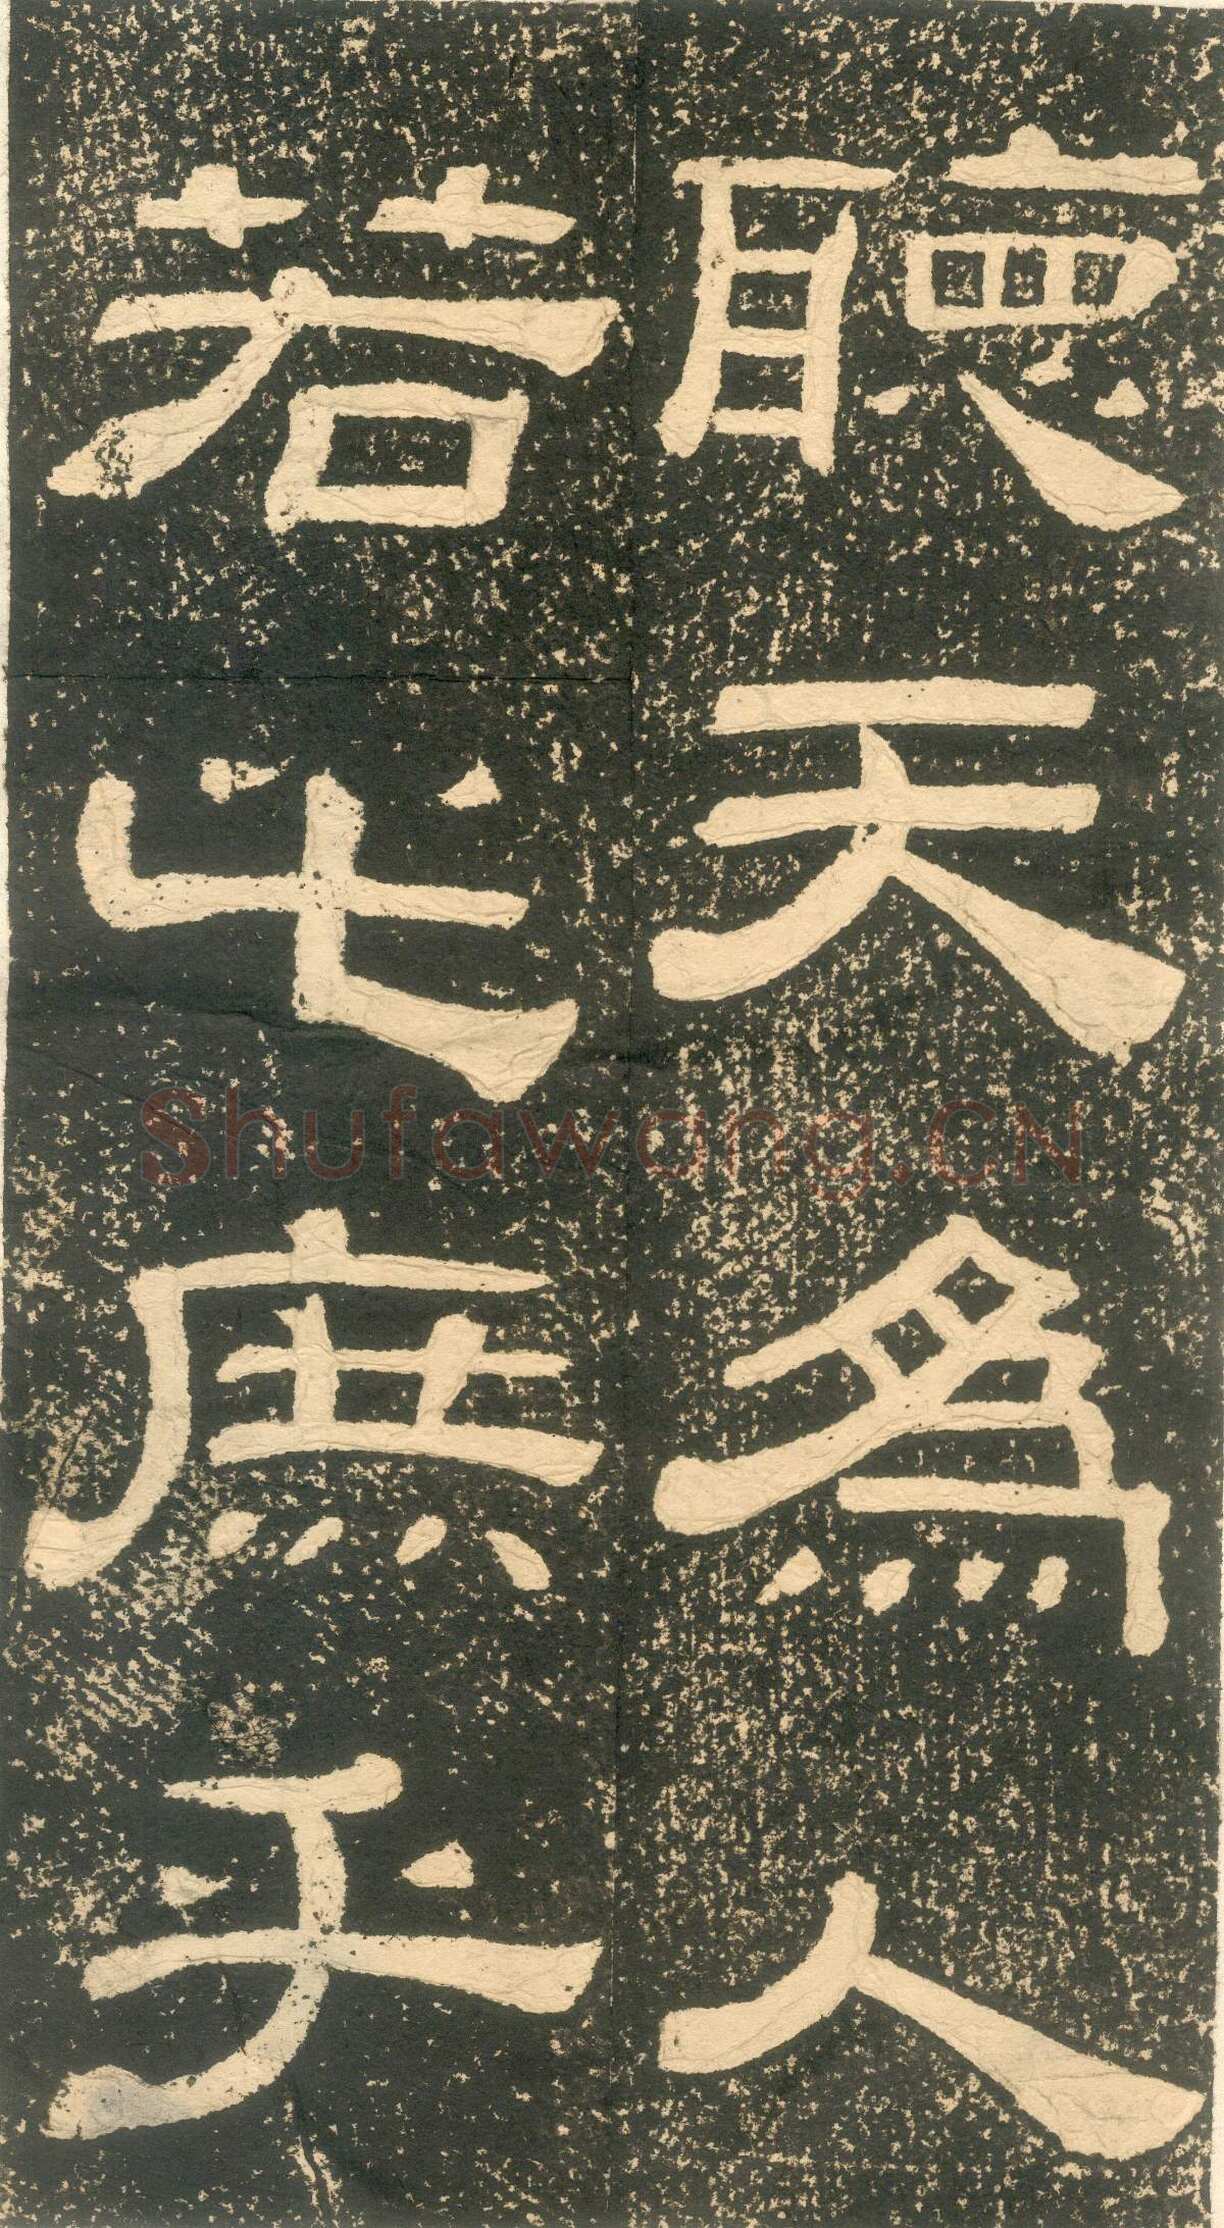 聽天爲人
若此庶乎
Shufawang.CN